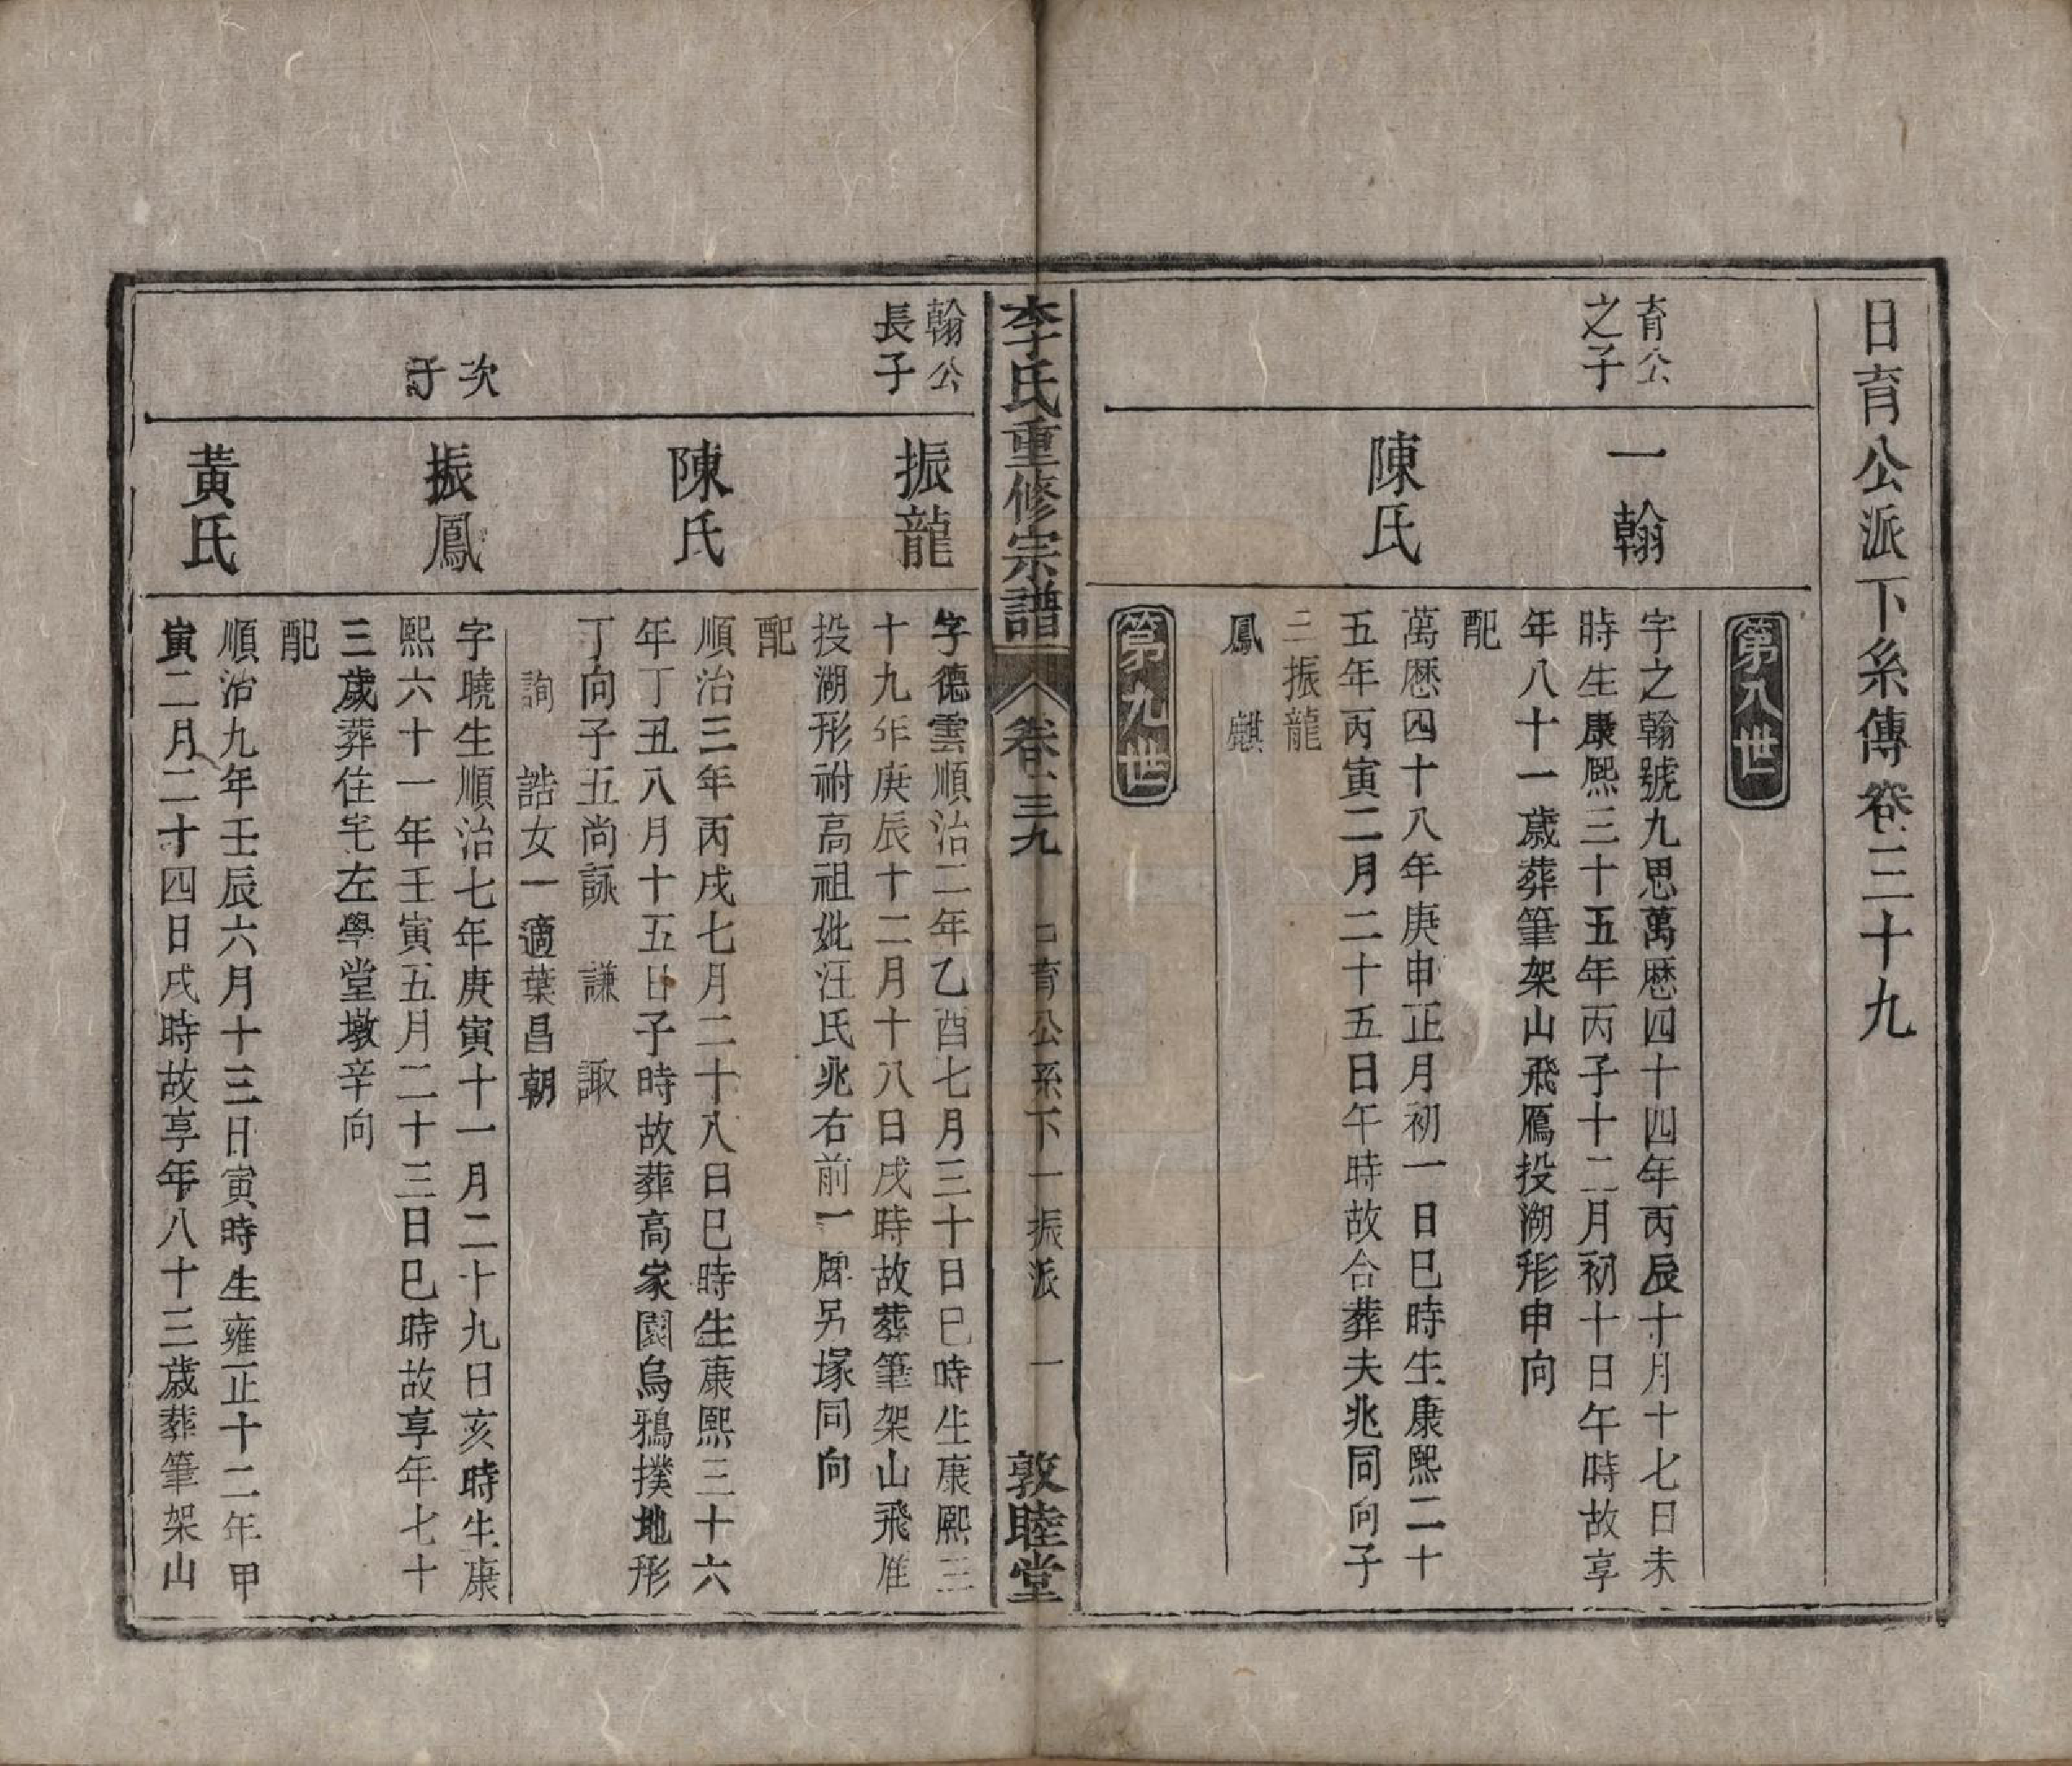 日育公派下系傳卷三十九
第八世
育公
之子
一翰
字之翰號九思萬歴四十四年丙辰十月十七日未
時生康熙三十五年丙子十二月初十日午時故享
年八十一歲葬筆架山飛鴈投湖形申向
陳氏
配
萬歴四十八年庚申正月初一日巳時生康熙二十
五年丙寅二月二十五日午時故合葬夫兆同向子
三振龍
鳳 麒
第九世
李氏重修宗譜 卷三九 日育公系下一振派 一 敦睦堂
翰公
長子
振龍
字德雲順治二年乙酉七月三十日巳時生康熙三
十九年庚辰十二月十八日戌時故葬筆架山飛雁
投湖形祔高祖妣汪氏兆右前一牌另塚同向
陳氏
配
順治三年丙戌七月二十八日巳時生康熙三十六
年丁丑八月十五日子時故葬高家園烏鴉撲地形
丁向子五尚詠 謙 諏
詢 誥女一適葉昌朝
次
子
振鳳
字曉生順治七年庚寅十一月二十九日亥時生康
熙六十一年壬寅五月二十三日巳時故享年七十
三歲葬住宅左學堂墩辛向
黃氏
配
順治九年壬辰六月十三日寅時生雍正十二年甲
寅二月二十四日戌時故享年八十三歲葬筆架山